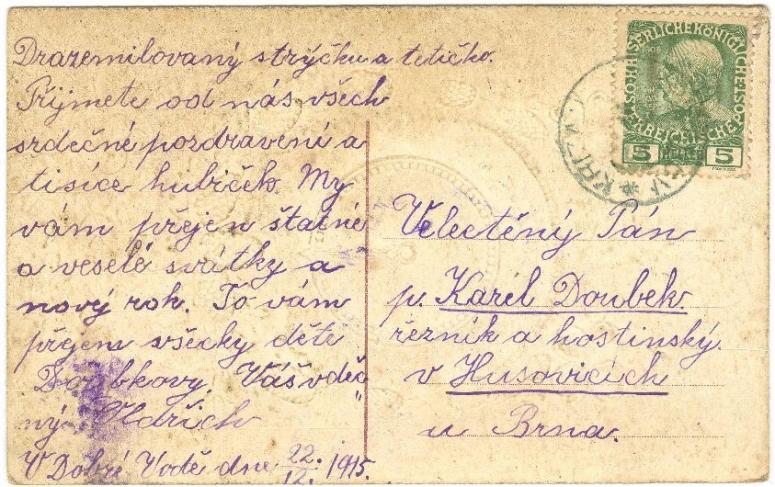 Drazemilovaný strýčku a tetičko.
Přijmete od nás všech
srdečné pozdravení a
tisíce hubiček. My
vám přejem štatné
a veselé svátky a
nový rok. To vám
přejem všecky děte
Doubkovy. Váš vděč
ný Oldřich
V Dobré Vodě dne 22./12. 1915.
KAISERLICHE KÖNIGLICHE
ÖSTERREICHISCHE POST
5 HELLER 5
Velectěný Pán
p. Karel Doubek.
řezník a hostinský.
v Husovicích
u Brna.